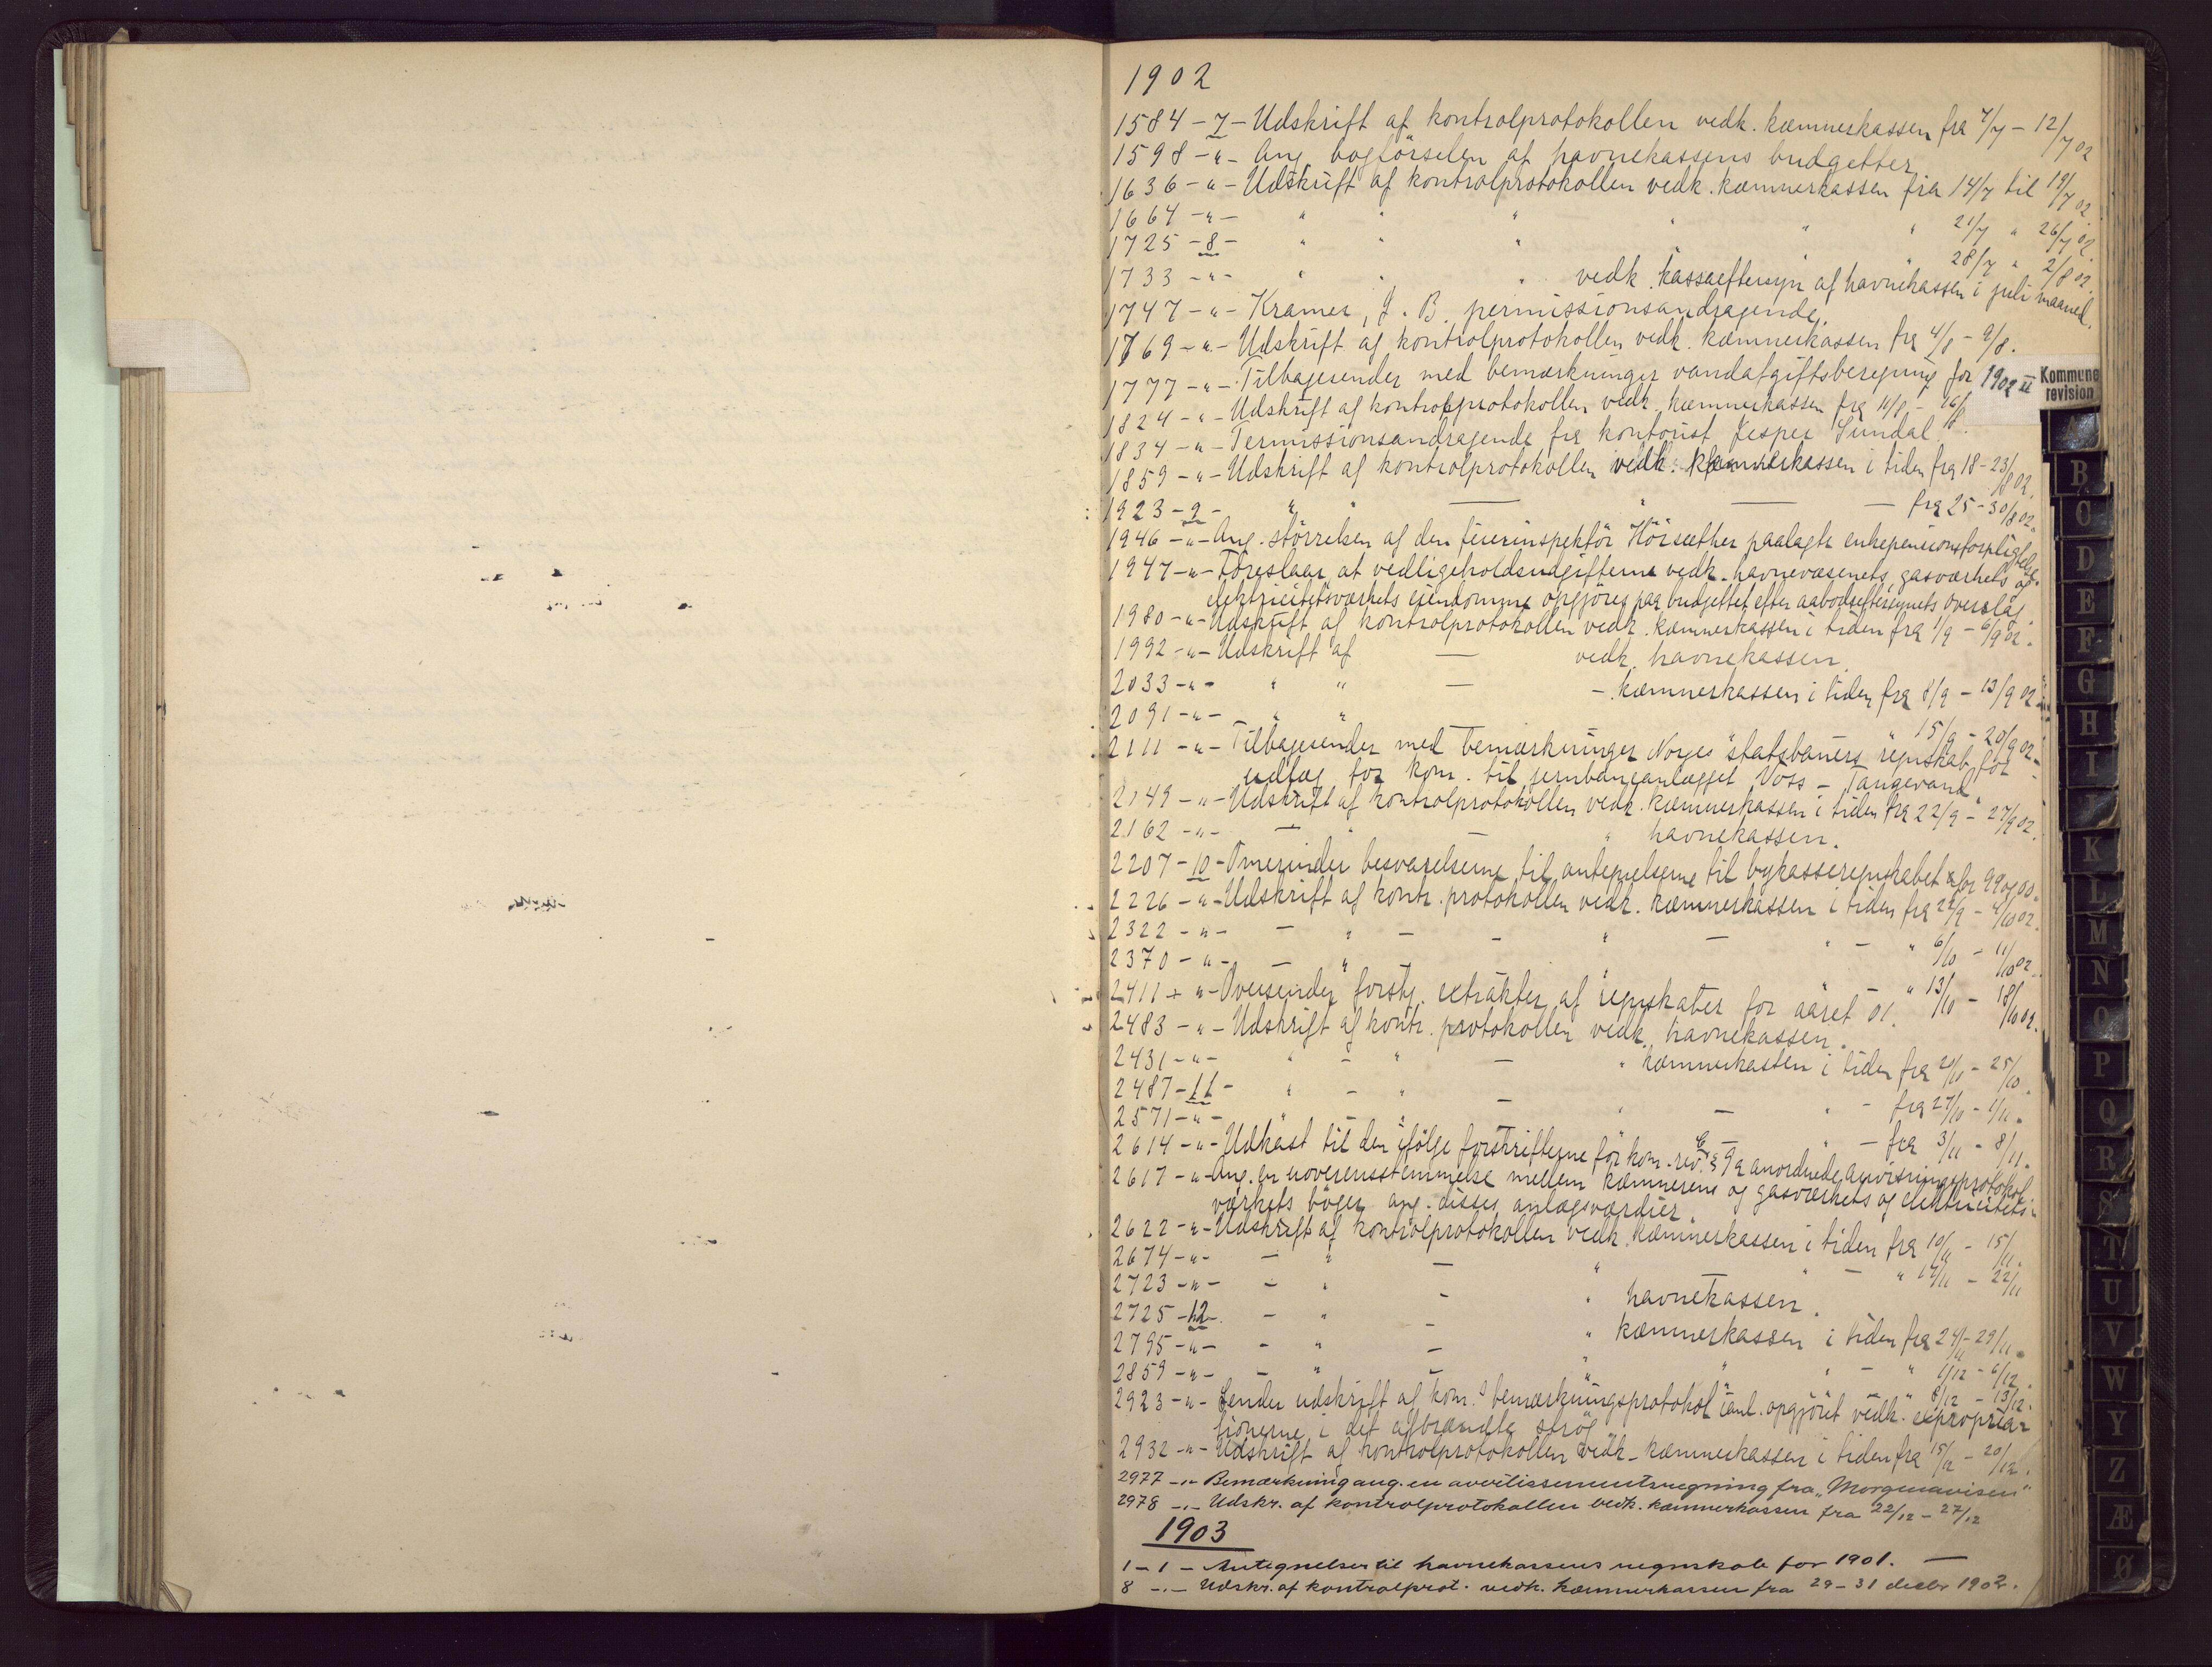 1902
1584 - 7 - Udskrift af kontrolprotokollen vedk. kæmnerkassen fra 7/7 - 12/7 02
1598 - " - Ang. bogförselen af havnekassens budgetter
1636 - " - Udskrift af kontrolprotokollen vedk. kæmnerkassen fra 14/7 til 19/7 02.
1664 - " - " " " " " " 21/7 " 26/7 02.
1725 - 8 - " " " " 28/7 " 2/8 02.
1733 - " - " " " vedk. kassaeftersyn af havnekassen i juli maaned.
1747 - " - Kramer, J. B. permissionsandragende.
1769 - " - Udskrift af kontrolprotokollen vedk. kæmnerkassen fra 4/8 - 9/8.
1777 - " - Tilbagesender med bemærkninger vandafgiftsberegning for 1902 II
Kommune
revision
1824 - " - Udskrift af kontrolprotokollen vedk. kæmnerkassen fra 11/8 - 16/8.
1834 - " - Permissionsandragende fra kontorist Jesper Sundal
1859 - " - Udskrift af kontrolprotokollen vedk. kæmnerkassen i tiden fra 18 - 23/8 02.
1923 - 9 - " " — " — — fra 25 - 30/8 02.
1946 - " - Ang. störrelsen af den feierinspektör Hörsæther paalagte enkepensionsforpligtelse.
1947 - " - Foreslaar at vedligeholdsudgifterne vedk. havnevæsenets, gasværkets og
elektricitetsværkets eiendomme opgjöres paa budgettet efter aabodseftersynets overslag.
1980 - " - Udskrift af kontrolprotokollen vedk. kæmnerkassen i tiden fra 1/9 - 6/9 02.
1992 - " - Udskrift af — vedk. havnekassen.
2033 - " - " " — - kæmnerkassen i tiden fra 8/9 - 13/9 02
2091 - " - " " " 15/9 - 20/9 02
2111 - " - Tilbagesender med bemærkninger Norges statsbaners regnskab for
udlæg for kom. til jernbaneanlægget Voss - Taugevand
2149 - " - Udskrift af kontrolprotokollen vedk. kæmnerkassen i tiden fra 22/9 - 27/9 02.
2162 - " - — " — " havnekassen.
2207 - 10 - Omsender besvarelserne til antegnelserne til bykasseregnskabet for 99 og 00.
2226 - " - Udskrift af kontr. protokollen vedk. kæmnerkassen i tiden fra 22/9 - 4/10 02.
2322 - " - — " — — " — " — " 6/10 - 11/10 02.
2370 - " - — " " " 13/10 - 18/10 02.
2411 - " - Oversender forsky. extrakter af regnskaber for aaret 01.
2483 - " - Udskrift af kontr. protokollen vedk. havnekassen.
2431 - " - " — " — " kæmnerkassen i tiden fra 20/10 - 25/10.
2487 - 11 - " — " — " — " — fra 27/10 - 1/11.
2571 - " - " " — " — fra 3/11 - 8/11.
2614 - " - Udkast til den ifölge forskrifterne for kom. rev. § 9 a anordnede anvisningsprotokol.
2617 - " - Ang. en uoverensstemmelse mellem kæmnerens og gasværkets og elektricitets-
værkets böger ang. disses anlægsværdier.
2622 - " - Udskrift af kontrolprotokollen vedk. kæmnerkassen i tiden fra 10/11 - 15/11.
2674 - " - — " — " " — " 17/11 - 22/11
2723 - " - — " — " havnekassen.
2725 - 12 - — " — " kæmnerkassen i tiden fra 24/11 - 29/11.
2795 - " - — " — " " " — " 1/12 - 6/12.
2859 - " - — " — " " " 8/12 - 13/12.
2923 - " - Sender udskrift af kom.s bemærkningsprotokol i anl. opgjöret vedk. expropria-
tionerne i det afbrændte strög
2932 - " - Udskrift af kontrolprotokollen vedk. kæmnerkassen i tiden fra 15/12 - 20/12.
2977 - " - Bemærkning ang. en avertissementsregning fra "Morgenavisen"
2978 - " - Udskr. af kontrolprotokollen vedk. kæmnerkassen fra 22/12 - 27/12
1903
1 - 1 - Antegnelser til havnekassens regnskab for 1901. —
8 - " - Udskr. af kontrolprot. vedk. kæmnerkassen fra 29 - 31 decbr 1902.
A
B
C
D
E
F
G
H
I
J
K
L
M
N
O
P
Q
R
S
T
U
V
W
Y
Z
Æ
Ø